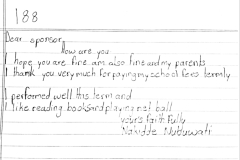 188
Dear sponsor,
How are you
I hope you are fine am also fine and my parents
I thank you very much for paying my school fees termly
I performed well this term and
I like reading books and playing net ball
yours faithfully
Nakidde